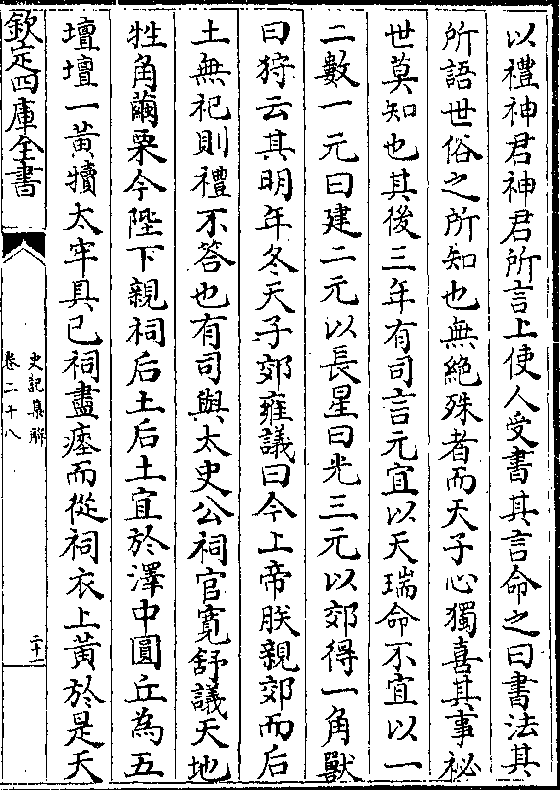 以禮神君神君所言上使人受書其言命之曰書法其
所語世俗之所知也無絶殊者而天子心獨喜其事祕
世莫知也其後三年有司言元宜以天瑞命不宜以一
二數一元曰建二元以長星曰光三元以郊得一角獸
曰狩云其明年冬天子郊雍議曰今上帝朕親郊而后
土無祀則禮不答也有司與太史公祠官寛舒議天地
牲角繭栗今陛下親祠后土后土宜於澤中圓丘為五
壇壇一黄犢太牢具已祠盡瘞而從祠衣上黄於是天
欽定四庫全書
史記集解
卷二十八
二十一